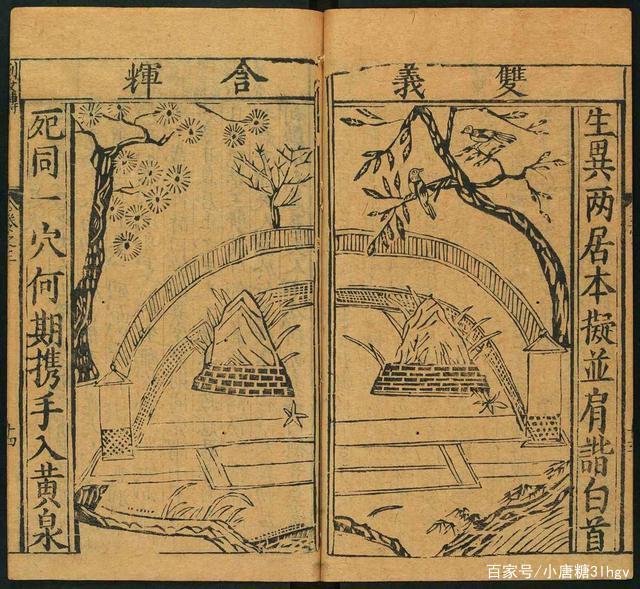 雙義含輝
生異两居本擬並肩諧白首
死同一穴何期携手入黄泉
卷之三
百家号/小唐糖3lhgv